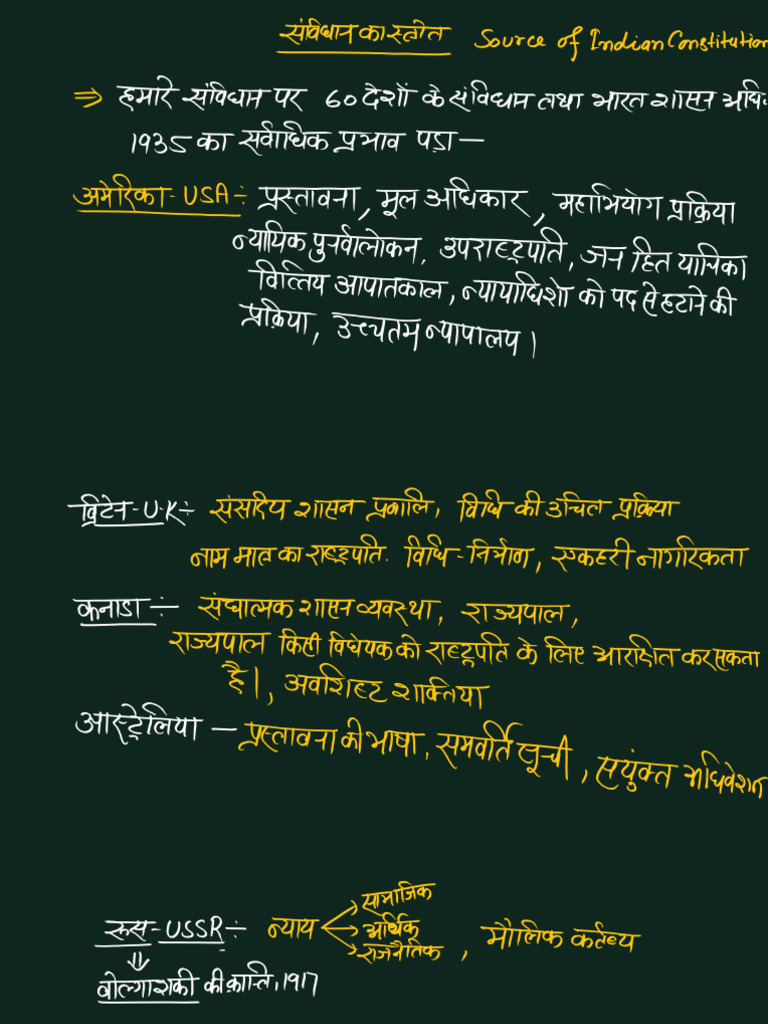 संविधान का स्त्रोत Source of Indian Constitution
⇒ हमारे संविधान पर 60 देशों के संविधान तथा भारत शासन अधि०
1935 का सर्वाधिक प्रभाव पड़ा —
अमेरिका - USA ÷ प्रस्तावना, मूल अधिकार, महाभियोग प्रक्रिया
न्यायिक पुर्नवालोकन, उपराष्ट्रपति, जन हित याचिका
वित्तिय आपातकाल, न्यायाधिशो को पद से हटाने की
प्रक्रिया, उच्चतम न्यापालप।
ब्रिटेन - U.K ÷ संसदिय शासन प्रणालि, विधि की उचित प्रक्रिया
नाम मात्र का राष्ट्रपति. विधि - निर्माण, एकहरी नागरिकता
कनाडा ÷ संघात्मक शासन व्यवस्था, राज्यपाल,
राज्यपाल किसी विधेयक को राष्ट्रपति के लिए आरक्षित कर सकता
है।, अवशिष्ट शक्तिया
आस्ट्रेलिया — प्रस्तावना की भाषा, समवर्ति सूची, संयुक्त अधिवेशन
सामाजिक
रूस - USSR ÷ न्याय आर्थिक, मौलिक कर्तव्य
राजनैतिक
⇓
वोल्गाशकी की क्रान्ति, 1917